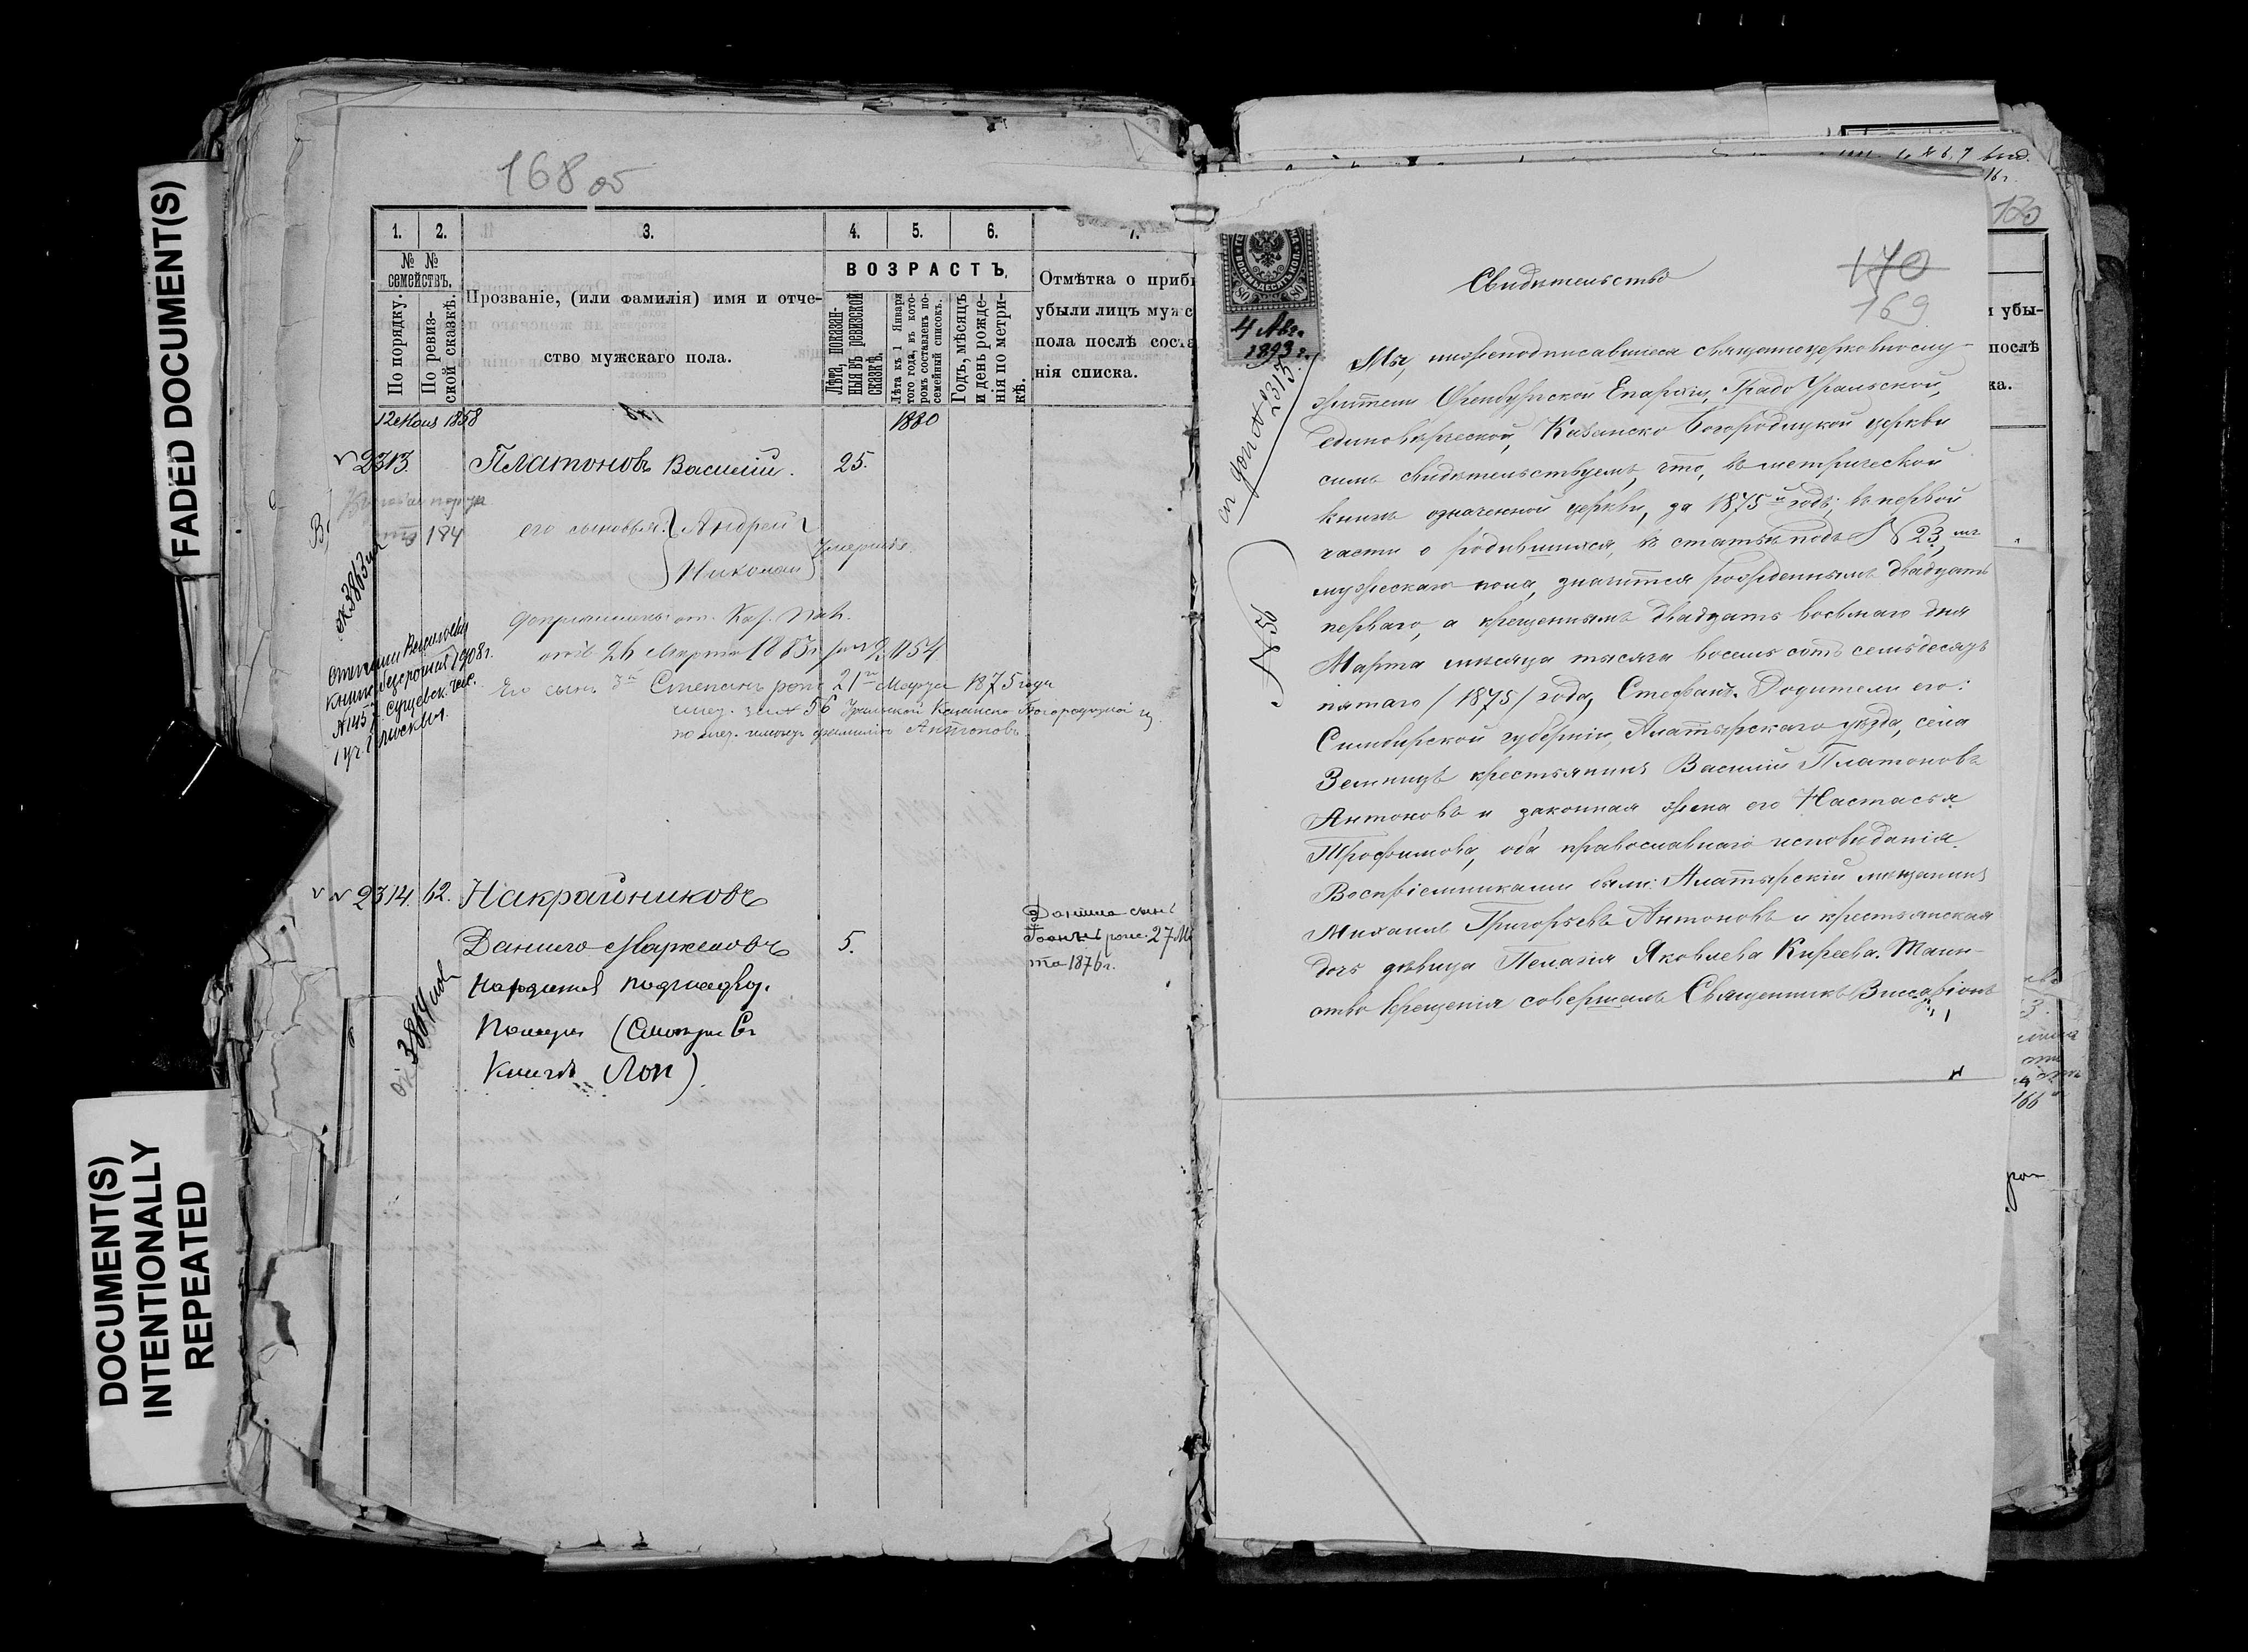 FADED DOCUMENT(S)
DOCUMENT(S)
INTENTIONALLY
REPEATED
168 об
1. 2. 3. 4. 5. 6. 7.
№ №
семействъ.
По порядку.
По ревизской сказкѣ.
Прозваніе, (или фамилія) имя и отче-
ство мужскаго пола.
ВОЗРАСТЪ.
Лѣта, показан-
ныя въ ревизской
сказкѣ.
Лѣта къ 1 Января
того года, въ кото-
ромъ составленъ по-
семейный списокъ.
Годъ, мѣсяцъ
и день рожде-
нія по метри-
кѣ.
Отмѣтка о приб
убыли лицъ мужс
пола послѣ соста
нія списка.
1858
1880
2313. Платоновъ Василій. 25.
184 его сыновья: Андрей
Николай
умерли
отъ 26 Марта 1883 г. за № 1154
Его сынъ 3й Степанъ род. 21го Марта 1875 года
56 Уральской Казанско Богородицкой ц.
фамилію Антоновъ
ок 3863
2314. 62. Накрайниковъ
Данило Маркеловъ 5.
номеръ (Смотри въ
Книгѣ
Данила сынъ
Іоаннъ рож. 27 Ма
та 1876 г.
170
169
Свидѣтельство
80 80
4 Авг.
1893 г.
2313.
№ 56
Мы, нижеподписавшіеся священноцерковнослу-
жители Оренбургской Епархіи, Градо Уральской,
единовѣрческой, Казанско Богородицкой церкви
симъ свидѣтельствуемъ, что, въ метрической
книгѣ означенной церкви, за 1875й годъ, въ первой
части о родившихся, въ статьѣ подъ № 23,
мужескаго пола, значится рожденнымъ двадцать
перваго, а крещеннымъ двадцать восьмаго дня
Марта мѣсяца тысяча восемь сотъ семьдесятъ
пятаго /1875/ года, Стефанъ. Родители его:
Симбирской губерніи, Алатырскаго уѣзда, села
крестьянинъ Василій Платоновъ
Антоновъ и законная жена его Настасья
Трофимова, оба православнаго исповѣданія.
Воспріемниками были: Алатырскій мѣщанинъ
Михаилъ Григорьевъ Антоновъ и крестьянская
дочь дѣвица Пелагія Яковлева Киреева. Таин-
ство крещенія совершалъ Священникъ Виссаріонъ
убы-
послѣ
ка.